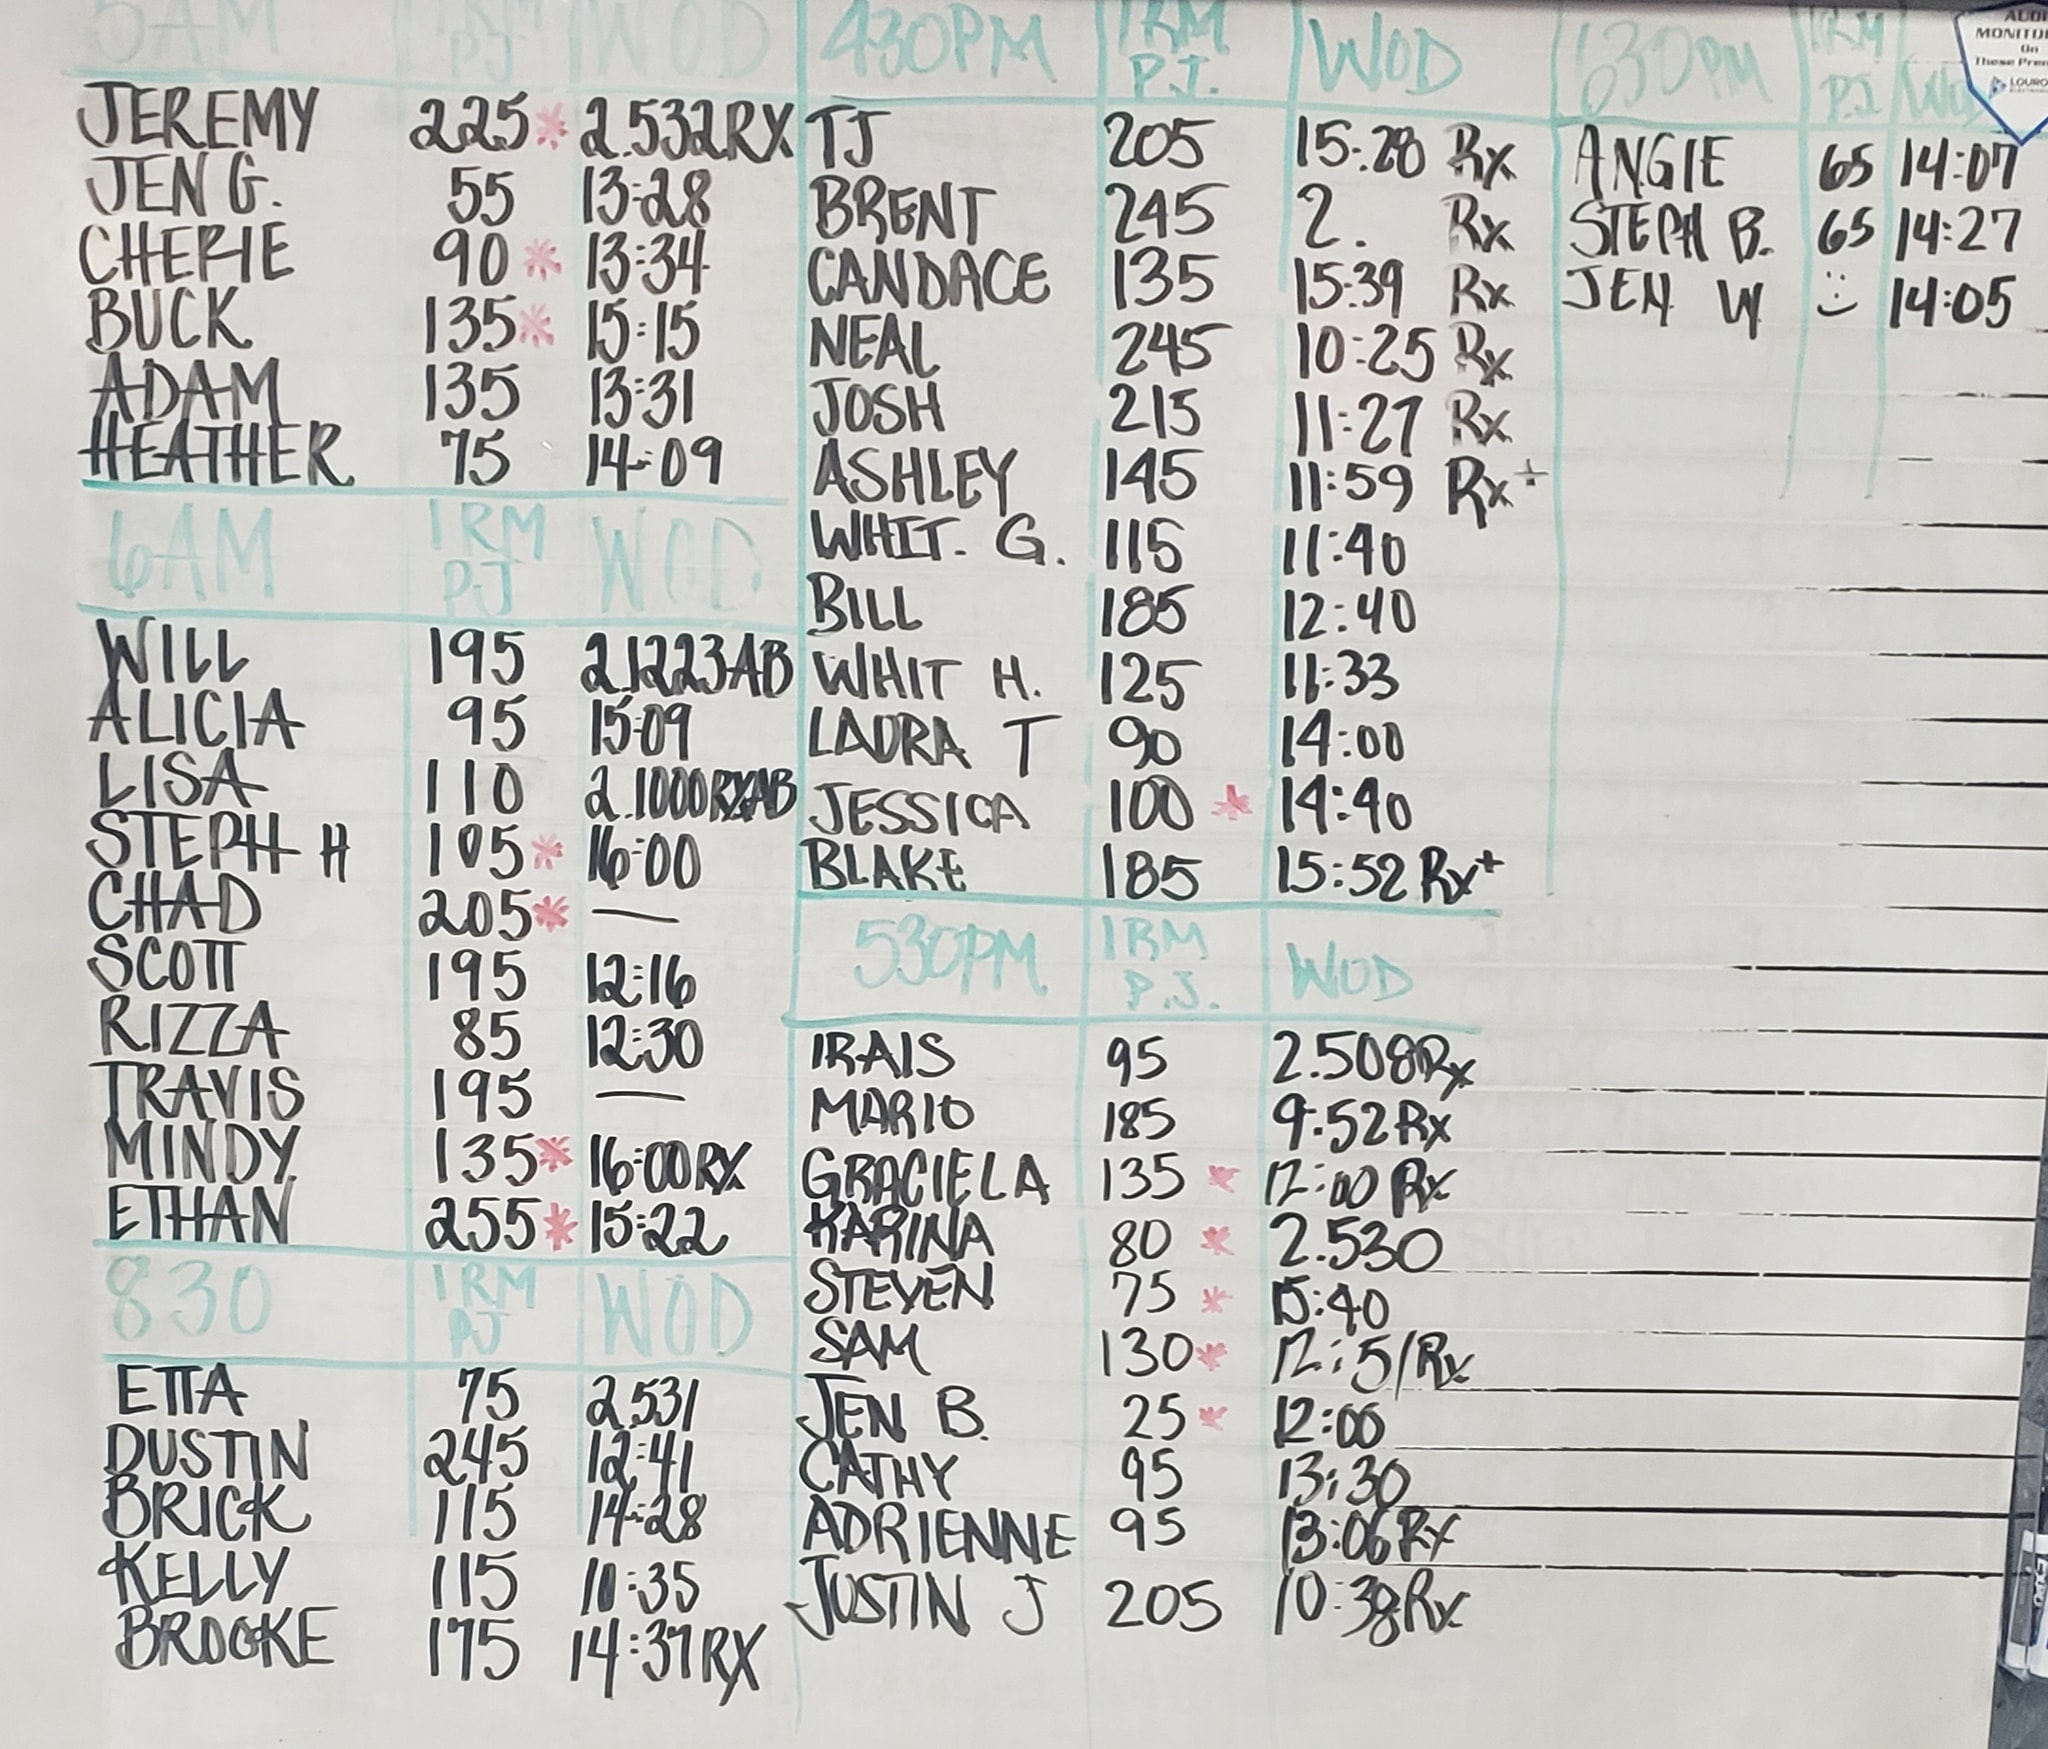 5AM 1RM PJ WOD
JEREMY 225* 2.532RX
JEN G. 55 13:28
CHERIE 90* 13:34
BUCK 135* 15:15
ADAM 135 13:31
HEATHER 75 14:09
6AM 1RM PJ WOD
WILL 195 2.1223AB
ALICIA 95 15:09
LISA 110 2.1000RXAB
STEPH H 105* 16:00
CHAD 205* —
SCOTT 195 12:16
RIZZA 85 12:30
TRAVIS 195 —
MINDY 135* 16:00RX
ETHAN 255* 15:22
830 1RM PJ WOD
ETTA 75 2.531
DUSTIN 245 12:41
BRICK 115 14:28
KELLY 115 10:35
BROOKE 175 14:37RX
430PM 1RM P.J. WOD
TJ 205 15:28 Rx
BRENT 245 2. Rx
CANDACE 135 15:39 Rx
NEAL 245 10:25 Rx
JOSH 215 11:27 Rx
ASHLEY 145 11:59 Rx+
WHIT. G. 115 11:40
BILL 185 12:40
WHIT H. 125 11:33
LAURA T 90 14:00
JESSICA 100 * 14:40
BLAKE 185 15:52 Rx+
530PM 1RM P.J. WOD
IRAIS 95 2.508Rx
MARIO 185 9:52Rx
GRACIELA 135 * 12:00 Rx
KARINA 80 * 2.530
STEVEN 75 * 15:40
SAM 130* 12:51Rx
JEN B. 25* 12:00
CATHY 95 13:30
ADRIENNE 95 13:06Rx
JUSTIN J 205 10:38Rx
630PM 1RM PJ WOD
ANGIE 65 14:07
STEPH B. 65 14:27
JEN W 14:05
On
LOUROE